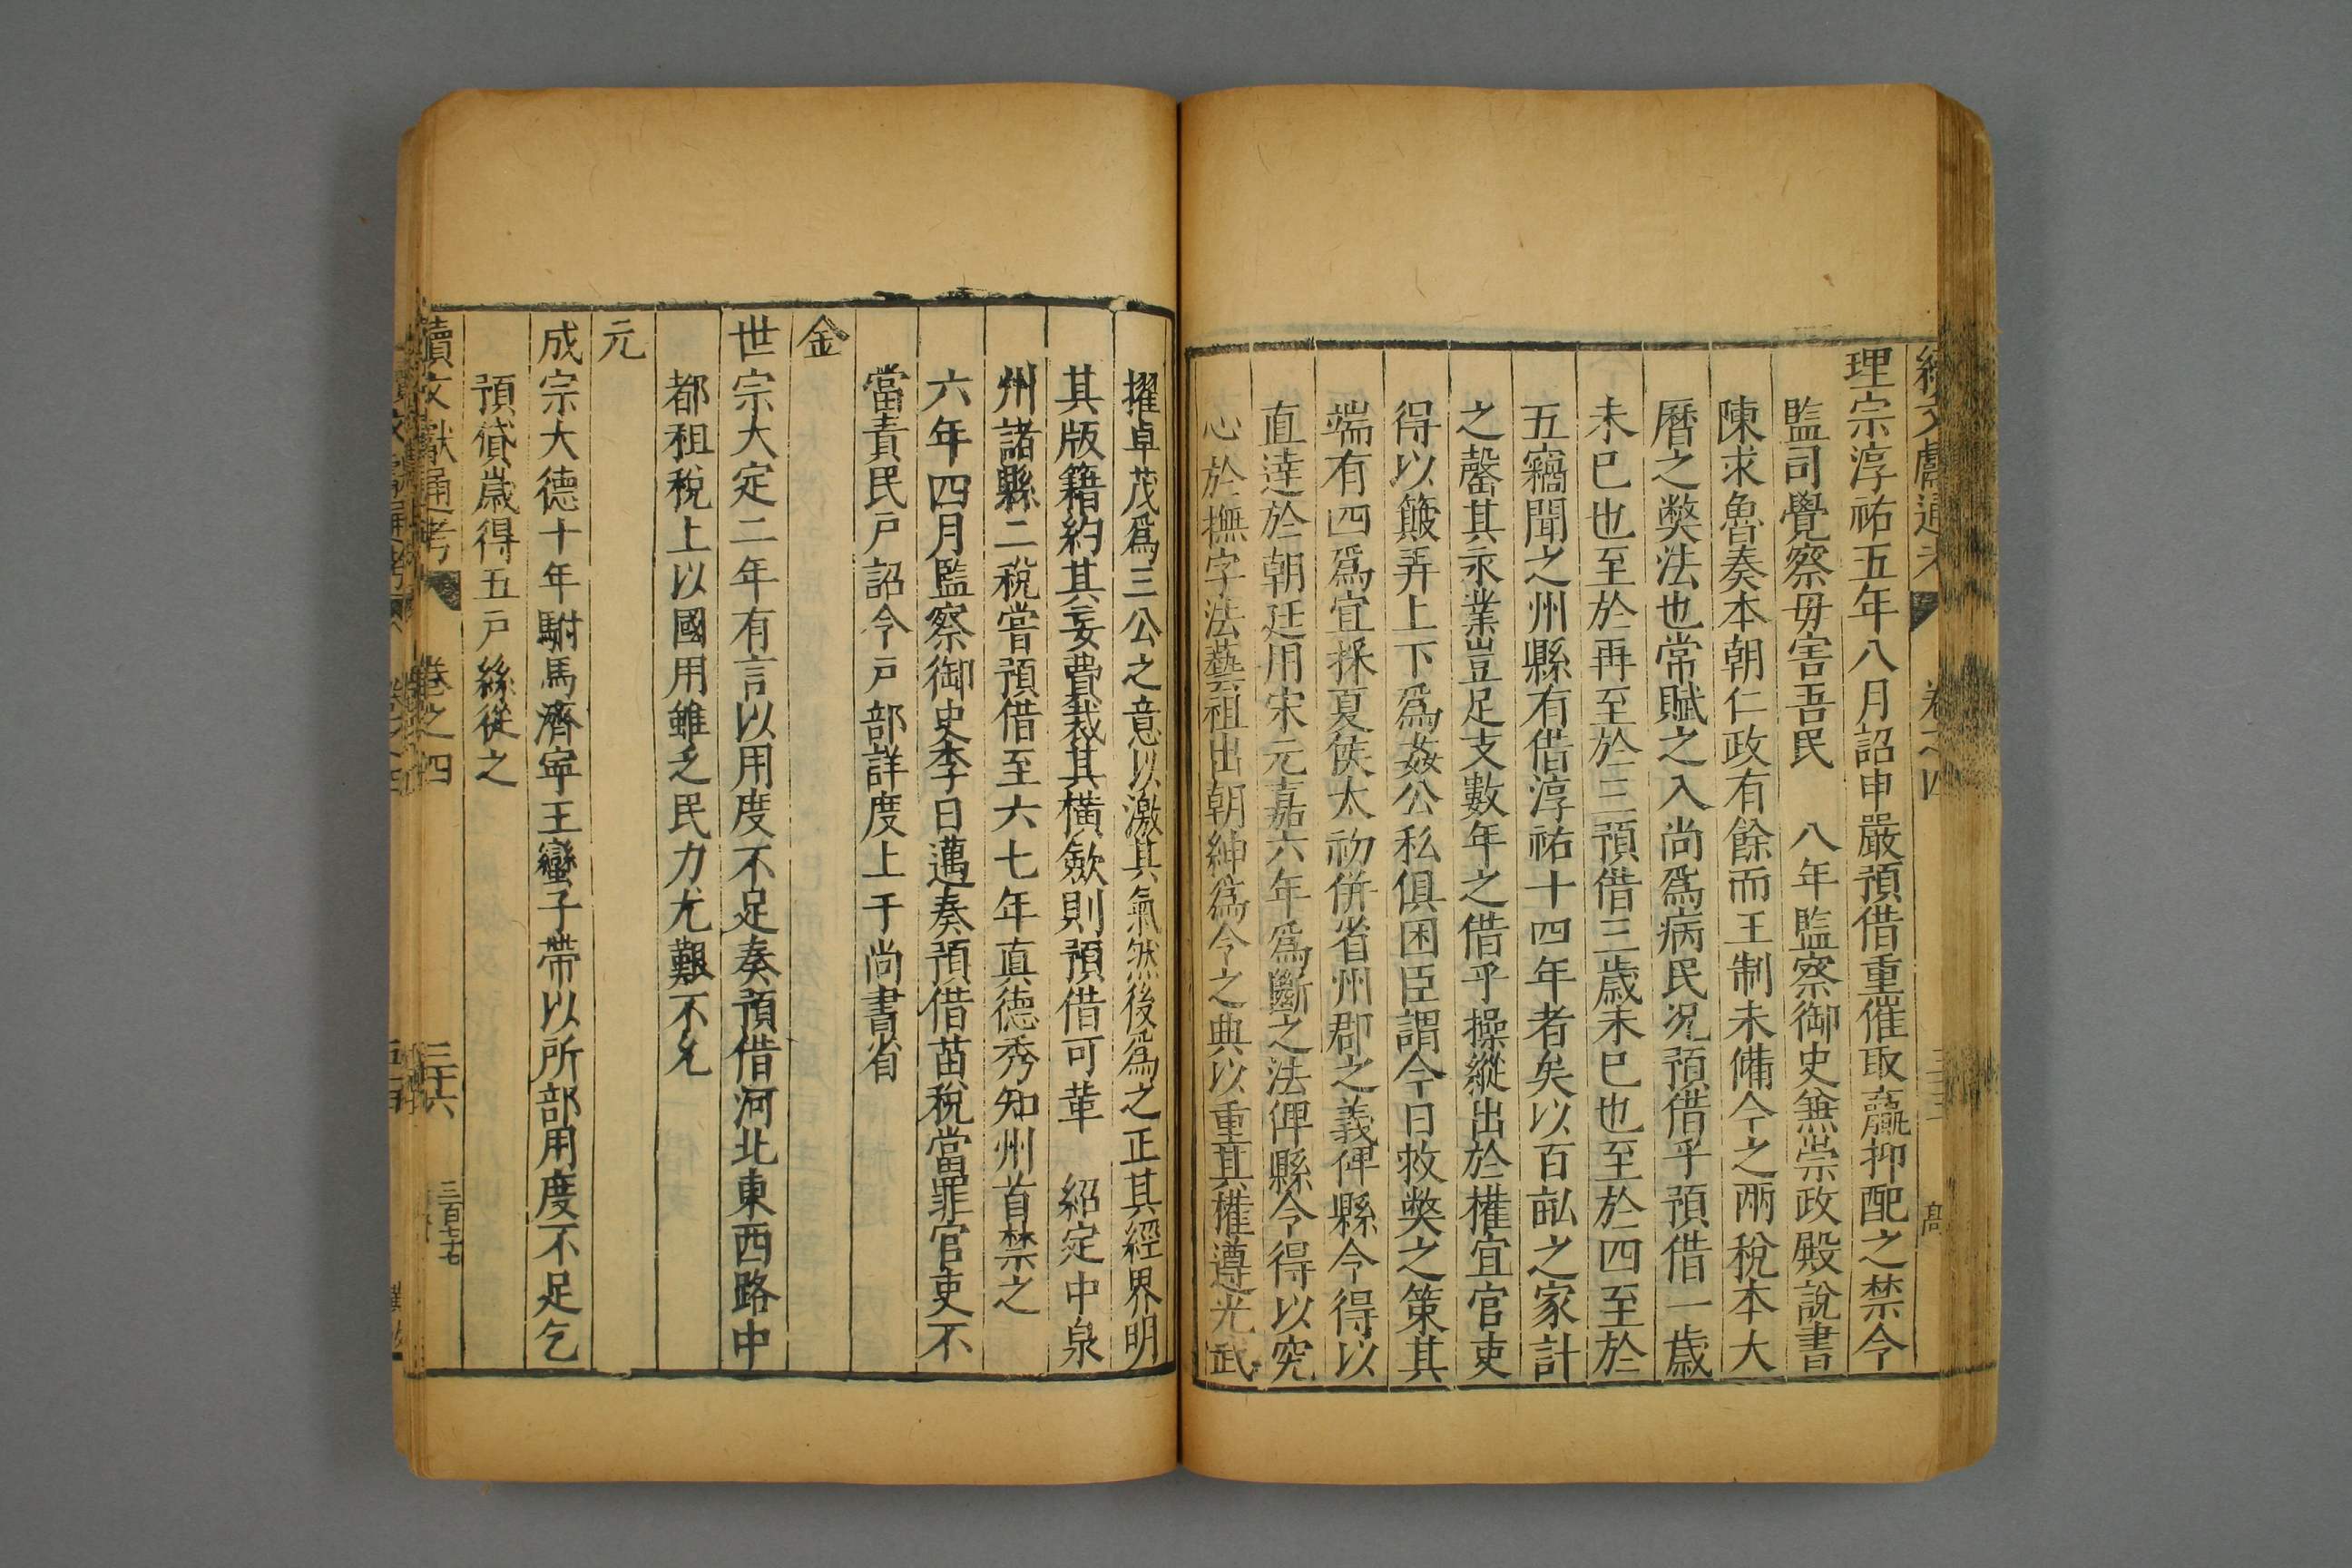 續文獻通考 卷之四 高
理宗淳祐五年八月詔申嚴預借重催取贏抑配之禁令
監司覺察毋害吾民 八年監察御史兼崇政殿說書
陳求魯奏本朝仁政有餘而王制未備今之兩稅本大
曆之弊法也常賦之入尚爲病民况預借乎預借一歲
未已也至於再至於三預借三歲未已也至於四至於
五竊聞之州縣有借淳祐十四年者矣以百畝之家計
之罄其永業豈足支數年之借乎操縱出於權宜官吏
得以簸弄上下爲姦公私俱困臣謂今日救弊之策其
端有四爲宜採夏侯太初併省州郡之義俾縣令得以
直達於朝廷用宋元嘉六年爲斷之法俾縣令得以究
心於撫字法藝祖出朝紳爲令之典以重其權遵光武
擢卓茂爲三公之意以激其氣然後爲之正其經界明
其版籍約其妄費裁其橫斂則預借可革 紹定中泉
州諸縣二稅嘗預借至六七年真德秀知州首禁之
六年四月監察御史李日邁奏預借苗稅當罪官吏不
當責民戶詔令戶部詳度上于尚書省
金
世宗大定二年有言以用度不足奏預借河北東西路中
都租稅上以國用雖乏民力尤艱不允
元
成宗大德十年駙馬濟寧王蠻子帶以所部用度不足乞
預貸歲得五戶絲從之
續文獻通考 卷之四 三十六 三百七十七